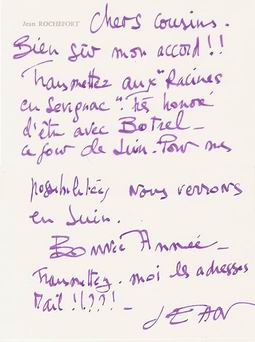 Jean ROCHEFORT
Chers cousins.
Bien sûr mon accord !!
Transmettez aux "Racines
en Sevignac". Très honoré
d'être avec Botrel _
ce jour de Juin. Pour mes
possibilités, nous verrons
en Juin.
Bonne Année _
Transmettez-moi les adresses
Mail !(??!_
JEAN